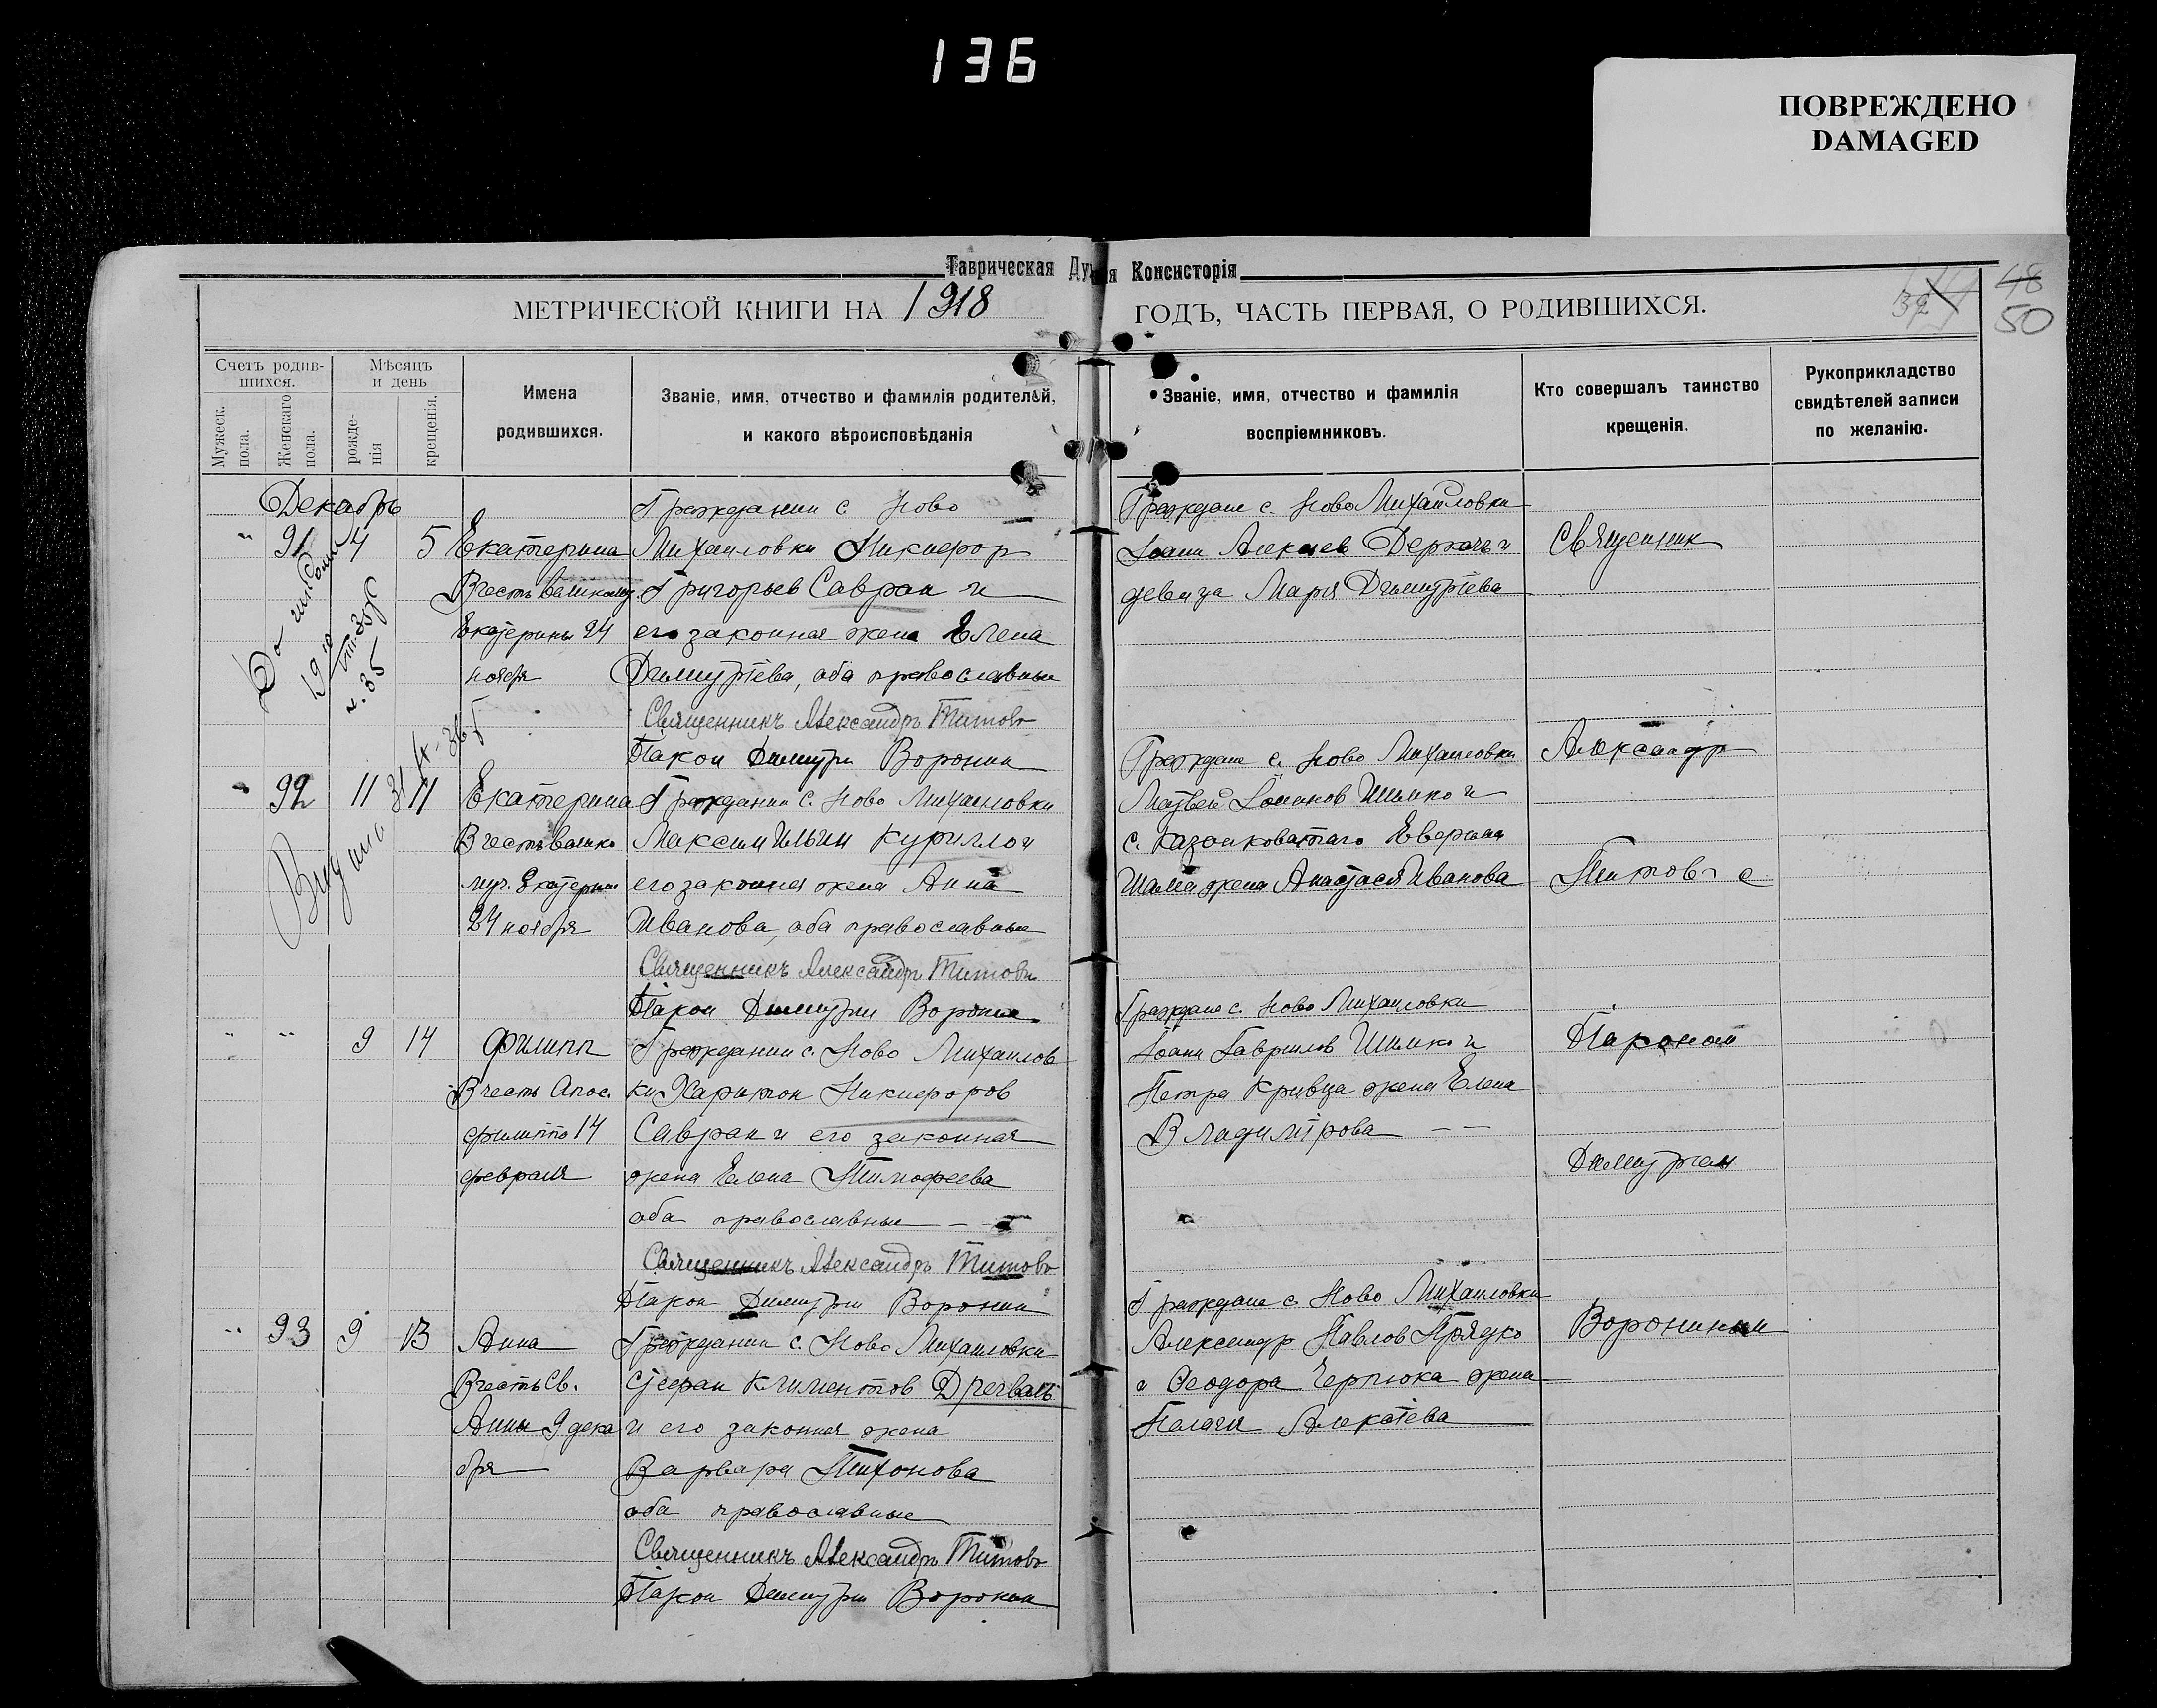 136
ПОВРЕЖДЕНО
DAMAGED
Таврическая Ду я Консисторія
МЕТРИЧЕСКОЙ КНИГИ НА 1918 ГОДЪ, ЧАСТЬ ПЕРВАЯ, О РОДИВШИХСЯ.
48
50
Счетъ родив-
шихся.
Мужеск. пола.
Женскаго пола.
Мѣсяцъ
и день
рожде-
нія
крещенія.
Имена
родившихся.
Званіе, имя, отчество и фамилія родителей,
и какого вѣроисповѣданія
Званіе, имя, отчество и фамилія
воспріемниковъ.
Кто совершалъ таинство
крещенія.
Рукоприкладство
свидѣтелей записи
по желанію.
Декабрь
91 4 5 Екатерина
В честь
Екатерины 24
ноября
Гражданин с Ново
Михаиловки Никифор
Григорьев Савран и
его законная жена Елена
Димитріева, оба православные
Священникъ Александръ Титовъ
Димитри Воронин
Граждане с. Ново Михаиловки
Іоанн Деркачъ и
девица Марія Димитріева
Священник
92 11 11 Екатерина
В честь велико
муч. Екатерины
24 ноября
Гражданин с. Ново Михаиловки
Максим Ильин Курилло и
его законная жена Анна
Иванова, оба православные
Священникъ Александръ Титовъ
Димитри Воронин
Граждане с. Ново Михаиловки
Матвей Шимко и
с.
жена Анастасія Иванова
Александр
Титов с
9 14 Филипп
В честь Апос.
Филиппа 14
февраля
Гражданин с. Ново Михаилов
ки Харитон Никифоров
Савран и его законная
жена Елена Тимофеева
оба православные
Священникъ Александръ Титовъ
Димитри Воронин
Граждане с. Ново Михаиловки
Іоанн Гаврилов Шимко и
Петра Кривца жена Елена
Владимірова
Димитрием
93 9 13 Анна
В честь Св.
Анны 9 дека
бря
Гражданин с. Ново Михаиловки
Стефан Климентов
и его законная жена
Варвара Тихонова
оба православные
Священникъ Александръ Титовъ
Димитри Воронин
Граждане с. Ново Михаиловки
Александр Павлов Прядко
и Феодора жена
Ворониным